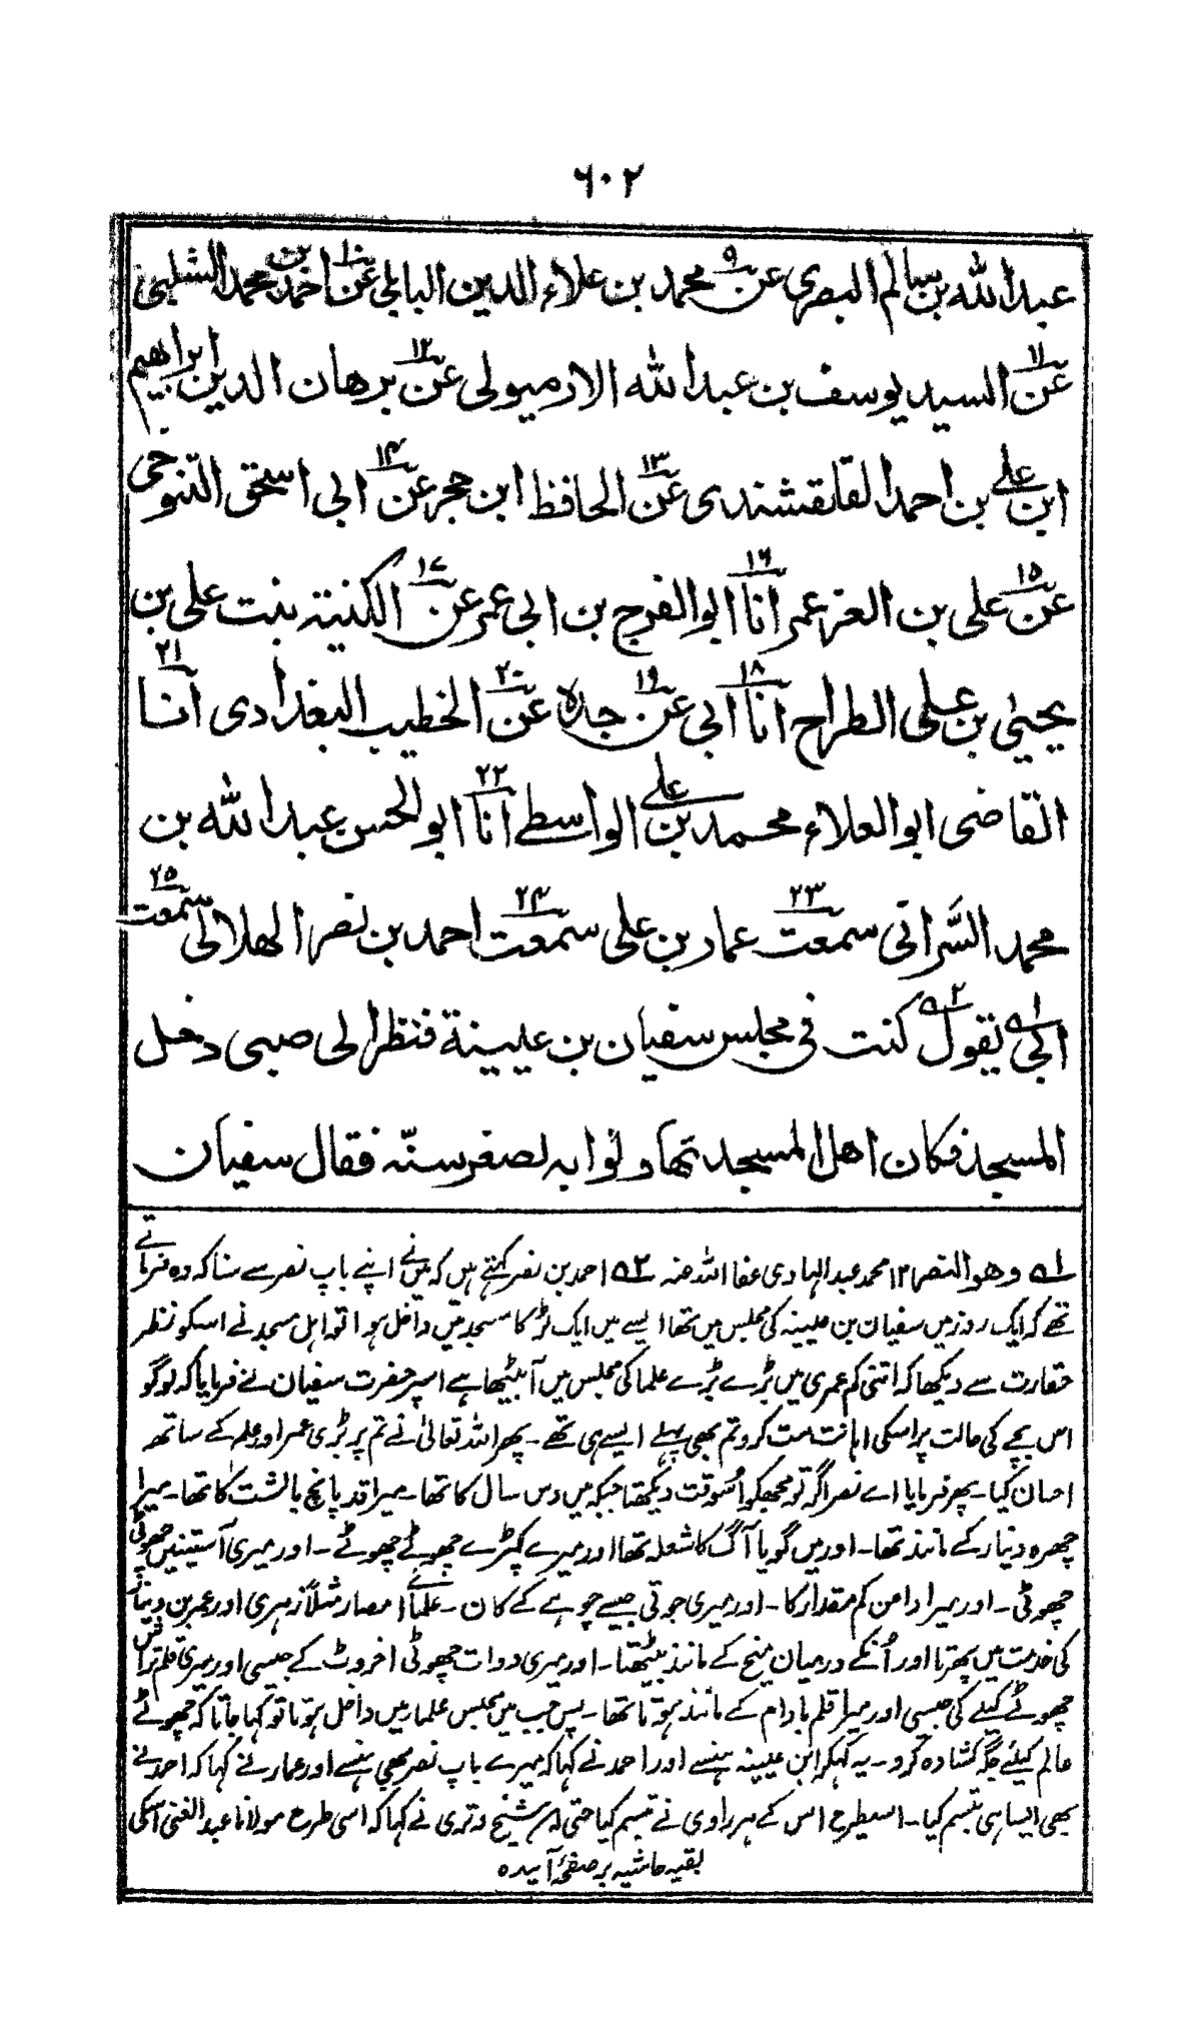 ٦٠٢
عبد الله بن سالم البصري عن ٩ محمد بن علاء الدين البابلي عن ١٠ احمد بن محمد الشلبي
عن ١١ السيد يوسف بن عبد الله الارميولى عن ١٢ برهان الدين ابراهيم
ابن علي بن احمد القلقشندى عن ١٣ الحافظ ابن حجر عن ١٤ ابى اسحق التنوخى
عن ١٥ على بن العز عمر انا ١٦ ابو الفرج بن ابى عمر عن ١٧ الكنية بنت على بن
يحيٰى بن على الطراح انا ١٨ ابى عن ١٩ جده عن ٢٠ الخطيب البغدادى انا ٢١
القاضى ابو العلاء محمد بن على الواسطے انا ٢٢ ابو الحسن عبد الله بن
محمد السَّراتى سمعت ٢٣ عمار بن على سمعت ٢٤ احمد بن نصر الهلالى سمعت ٢٥
ابى ١ه يقول ٢ه كنت فى مجلس سفيان بن عيينة فنظر الى صبى دخل
المسجد فكان اهل المسجد تهاونوا به لصغر سنّه فقال سفيان
١ه وهو النصر ١٢ محمد عبد الہادى عفا اللہ عنہ ٢ه احمد بن نصر کہتے ہیں کہ میں نے اپنے باپ نصر سے سنا کہ وہ فرماتے
تھے کہ ایک روز میں سفیان بن عیینہ کی مجلس میں تھا ایسے میں ایک لڑکا مسجد میں داخل ہوا تو اہل مسجد نے اسکو نظر
حقارت سے دیکھا کہ اتنی کم عمری میں بڑے بڑے علما کی مجلس میں آبیٹھا ہے اسپر حضرت سفیان نے فرمایا کہ لوگو
اس بچے کی حالت پر اسکی اہانت مت کرو تم بھی پہلے ایسے ہی تھے۔ پھر اللہ تعالیٰ نے تم پر بڑی عمر اور علم کے ساتھ
احسان کیا۔ پھر فرمایا اے نصر اگر تو مجھکو اُسوقت دیکھتا جبکہ میں دس سال کا تھا۔ میرا قد پانچ بالشت کا تھا۔ میرا
چہرہ دینار کے مانند تھا۔ اور میں گویا آگ کا شعلہ تھا اور میرے کپڑے چھوٹے چھوٹے۔ اور میری آستینیں چھوٹی
چھوٹی۔ اور میرا دامن کم مقدار کا۔ اور میری جوتی جیسے چوہے کے کان۔ علمائے امصار مثلاً زہری اور عمر بن دینار
کی خدمت میں پھرتا اور اُنکے درمیان میخ کے مانند بیٹھتا۔ اور میری دوات چھوٹی اخروٹ کے جیسی اور میری قلم تراش
چھوٹے کیلے کی جیسی اور میرا قلم بادام کے مانند ہوتا تھا۔ پس جب میں مجلس علما میں داخل ہوتا تو کہا جاتا کہ چھوٹے
عالم کیلئے جگہ کشادہ کرو۔ یہ کہکر ابن عیینہ ہنسے اور احمد نے کہا کہ میرے باپ نصر بھی ہنسے اور عمار نے کہا کہ احمد نے
بھی ایسا ہی تبسم کیا۔ اسیطرح اس کے ہر راوی نے تبسم کیا حتی شیخ وتری نے کہا کہ اسی طرح مولانا عبد الغنی اسکی
بقیہ حاشیہ بر صفحۂ آیندہ